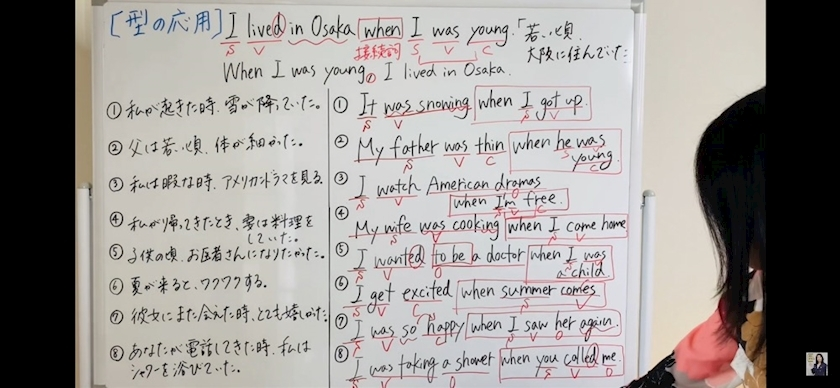 [型の応用] I lived in Osaka when I was young.「若い頃、
S V 接続詞 S V C 大阪に住んでいた
When I was young, I lived in Osaka.
① 私が起きた時、雪が降っていた。
② 父は若い頃、体が細かった。
③ 私は暇な時、アメリカンドラマを見る。
④ 私が帰ってきたとき、妻は料理を
していた。
⑤ 子供の頃、お医者さんになりたかった。
⑥ 夏が来ると、ワクワクする。
⑦ 彼女にまた会えた時、とても嬉しかった。
⑧ あなたが電話してきた時、私は
シャワーを浴びていた。
① It was snowing when I got up.
S V S V
② My father was thin when he was
S V C S V
young.
C
③ I watch American dramas
S V O
when I'm free.
S V C
④ My wife was cooking when I came home
S V S V
⑤ I wanted to be a doctor when I was
S V O S V
a child.
C
⑥ I get excited when summer comes
S V C S V
⑦ I was so happy when I saw her again.
S V C S V O
⑧ I was taking a shower when you called me.
S V O S V O